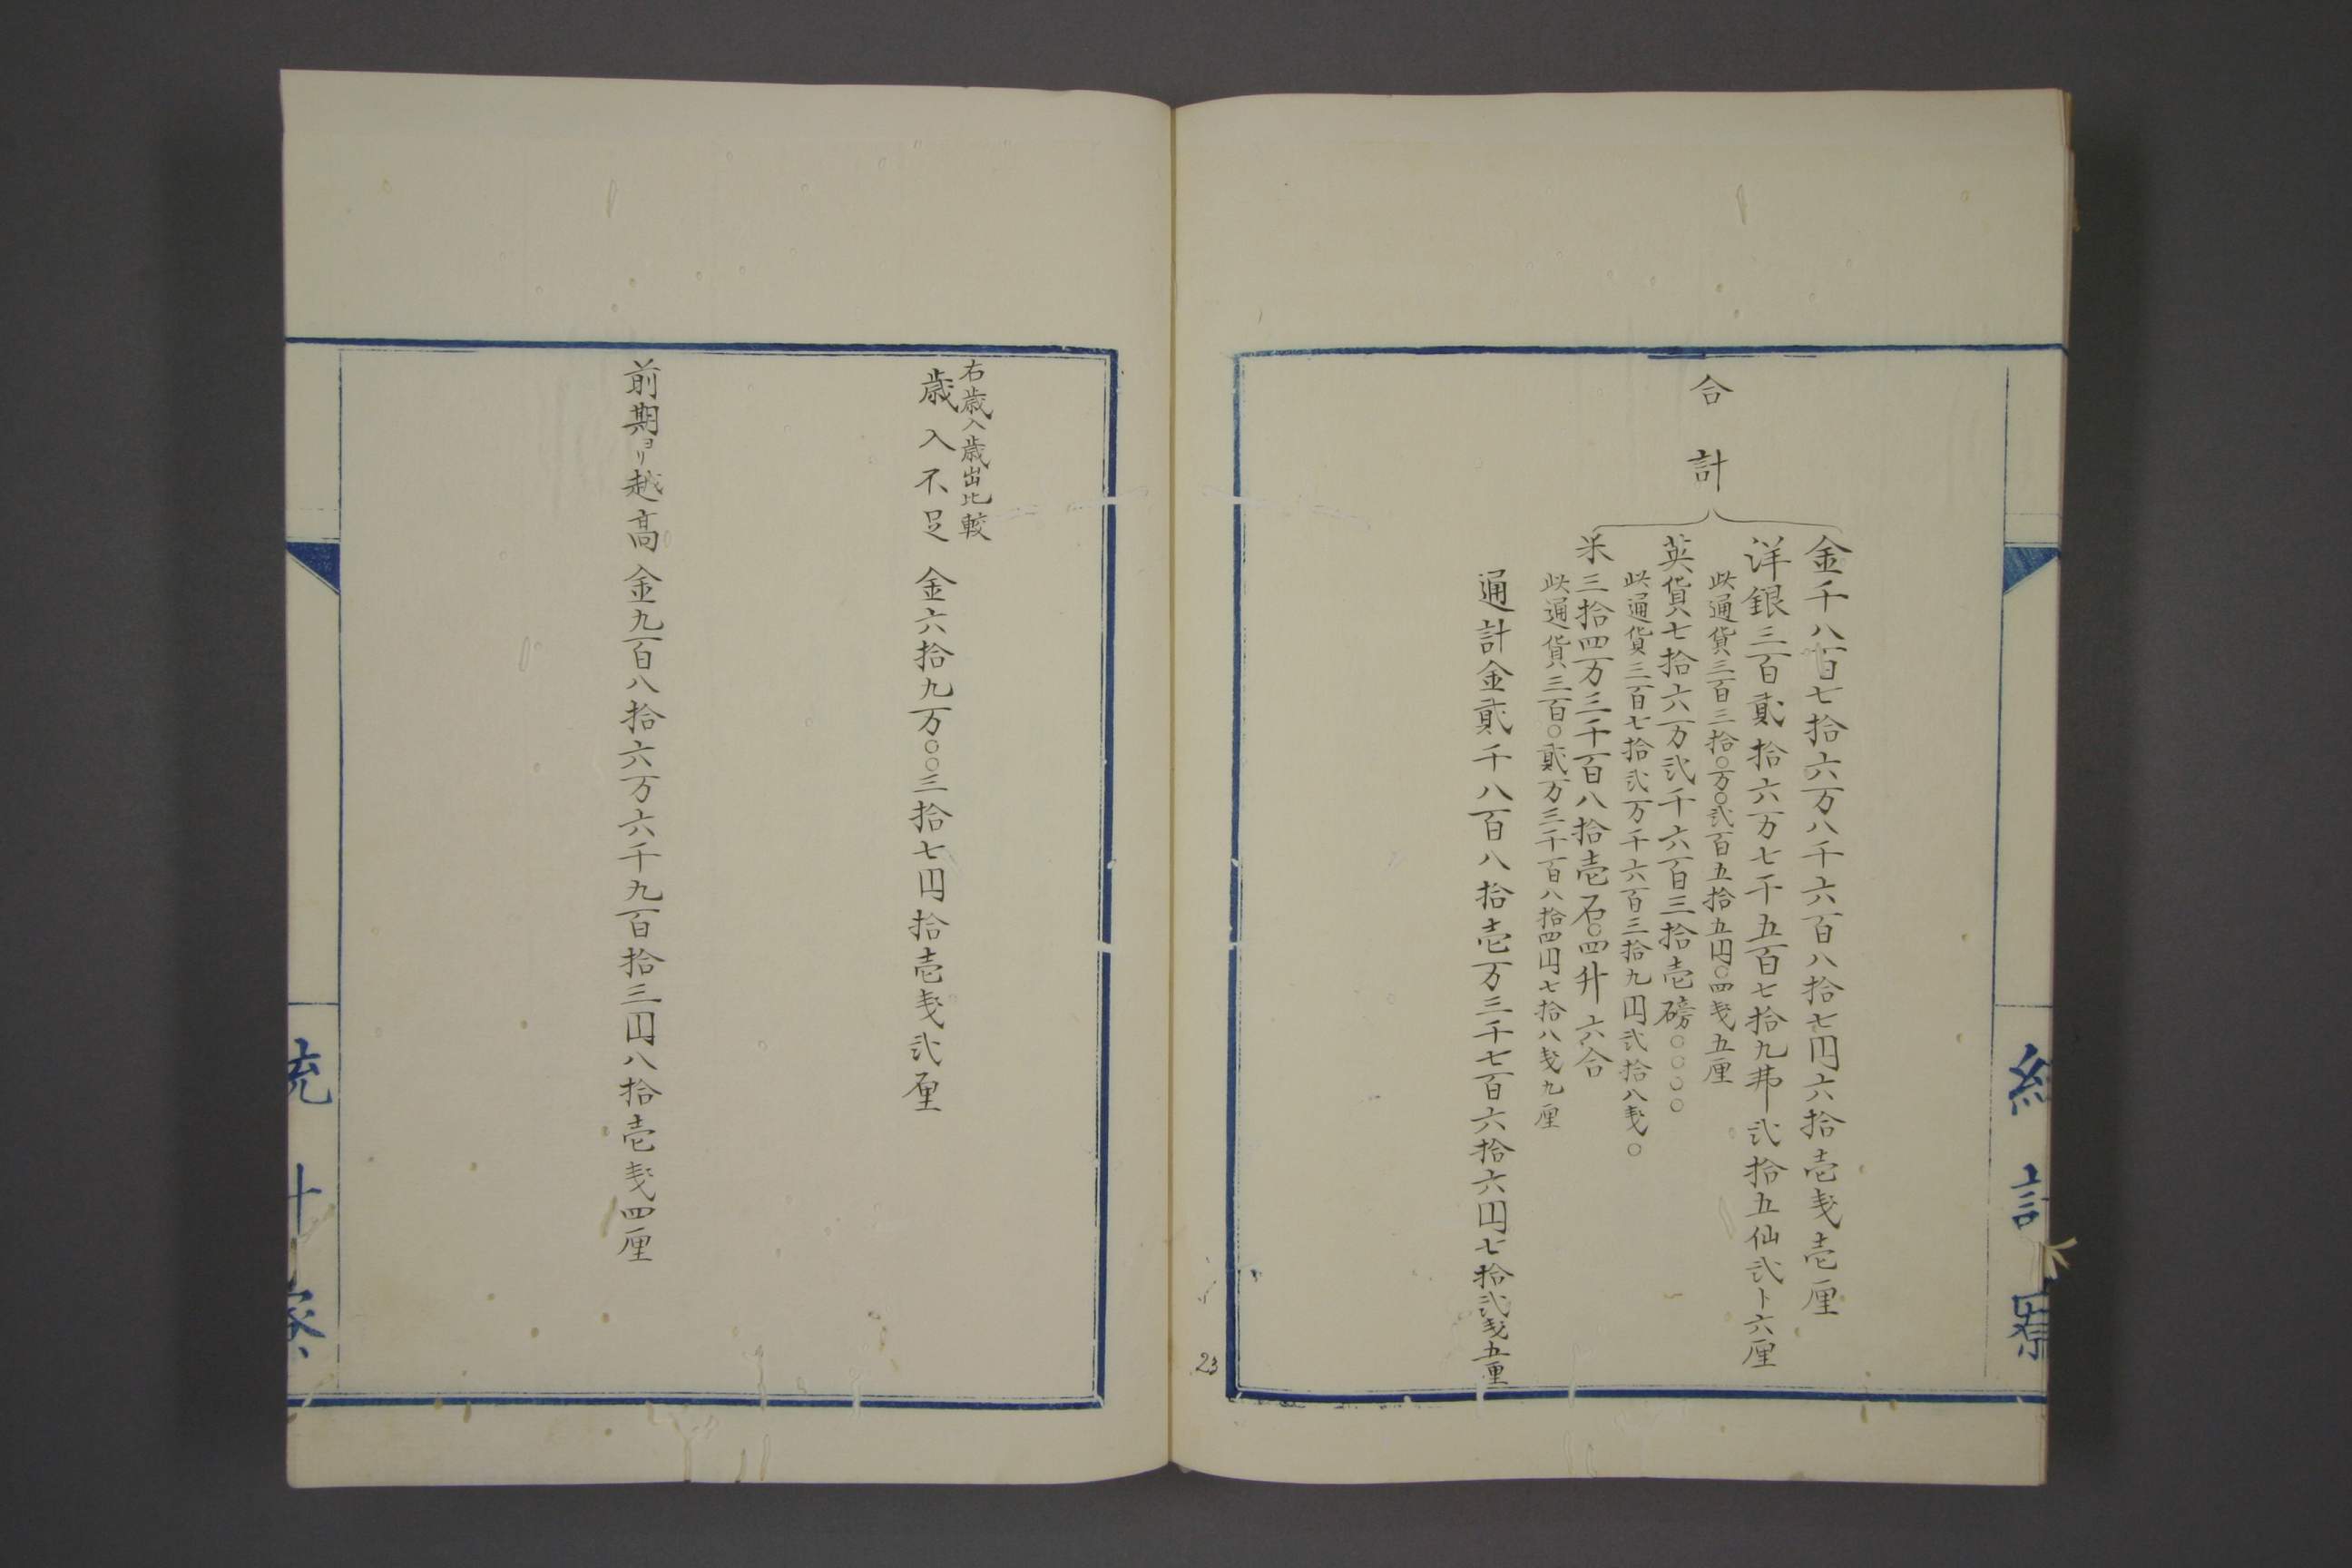 統計寮
合計
金千八百七拾六万八千六百八拾七円六拾壱戔壱厘
洋銀三百貳拾六万七千五百七拾九弗弐拾五仙弐ト六厘
此通貨三百三拾〇万〇弐百五拾五円〇四戔五厘
英貨七拾六万弐千六百三拾壱磅〇〇〇〇
此通貨三百七拾弐万千六百三拾九円弐拾八戔〇
米三拾四万三千百八拾壱石〇四升六合
此通貨三百〇貳万三千百八拾四円七拾八戔九厘
通計金貳千八百八拾壱万三千七百六拾六円七拾弐戔五厘
23
右歳入歳出比較
歳入不足 金六拾九万〇〇三拾七円拾壱戔弐厘
前期ヨリ越高 金九百八拾六万六千九百拾三円八拾壱戔四厘
統計寮